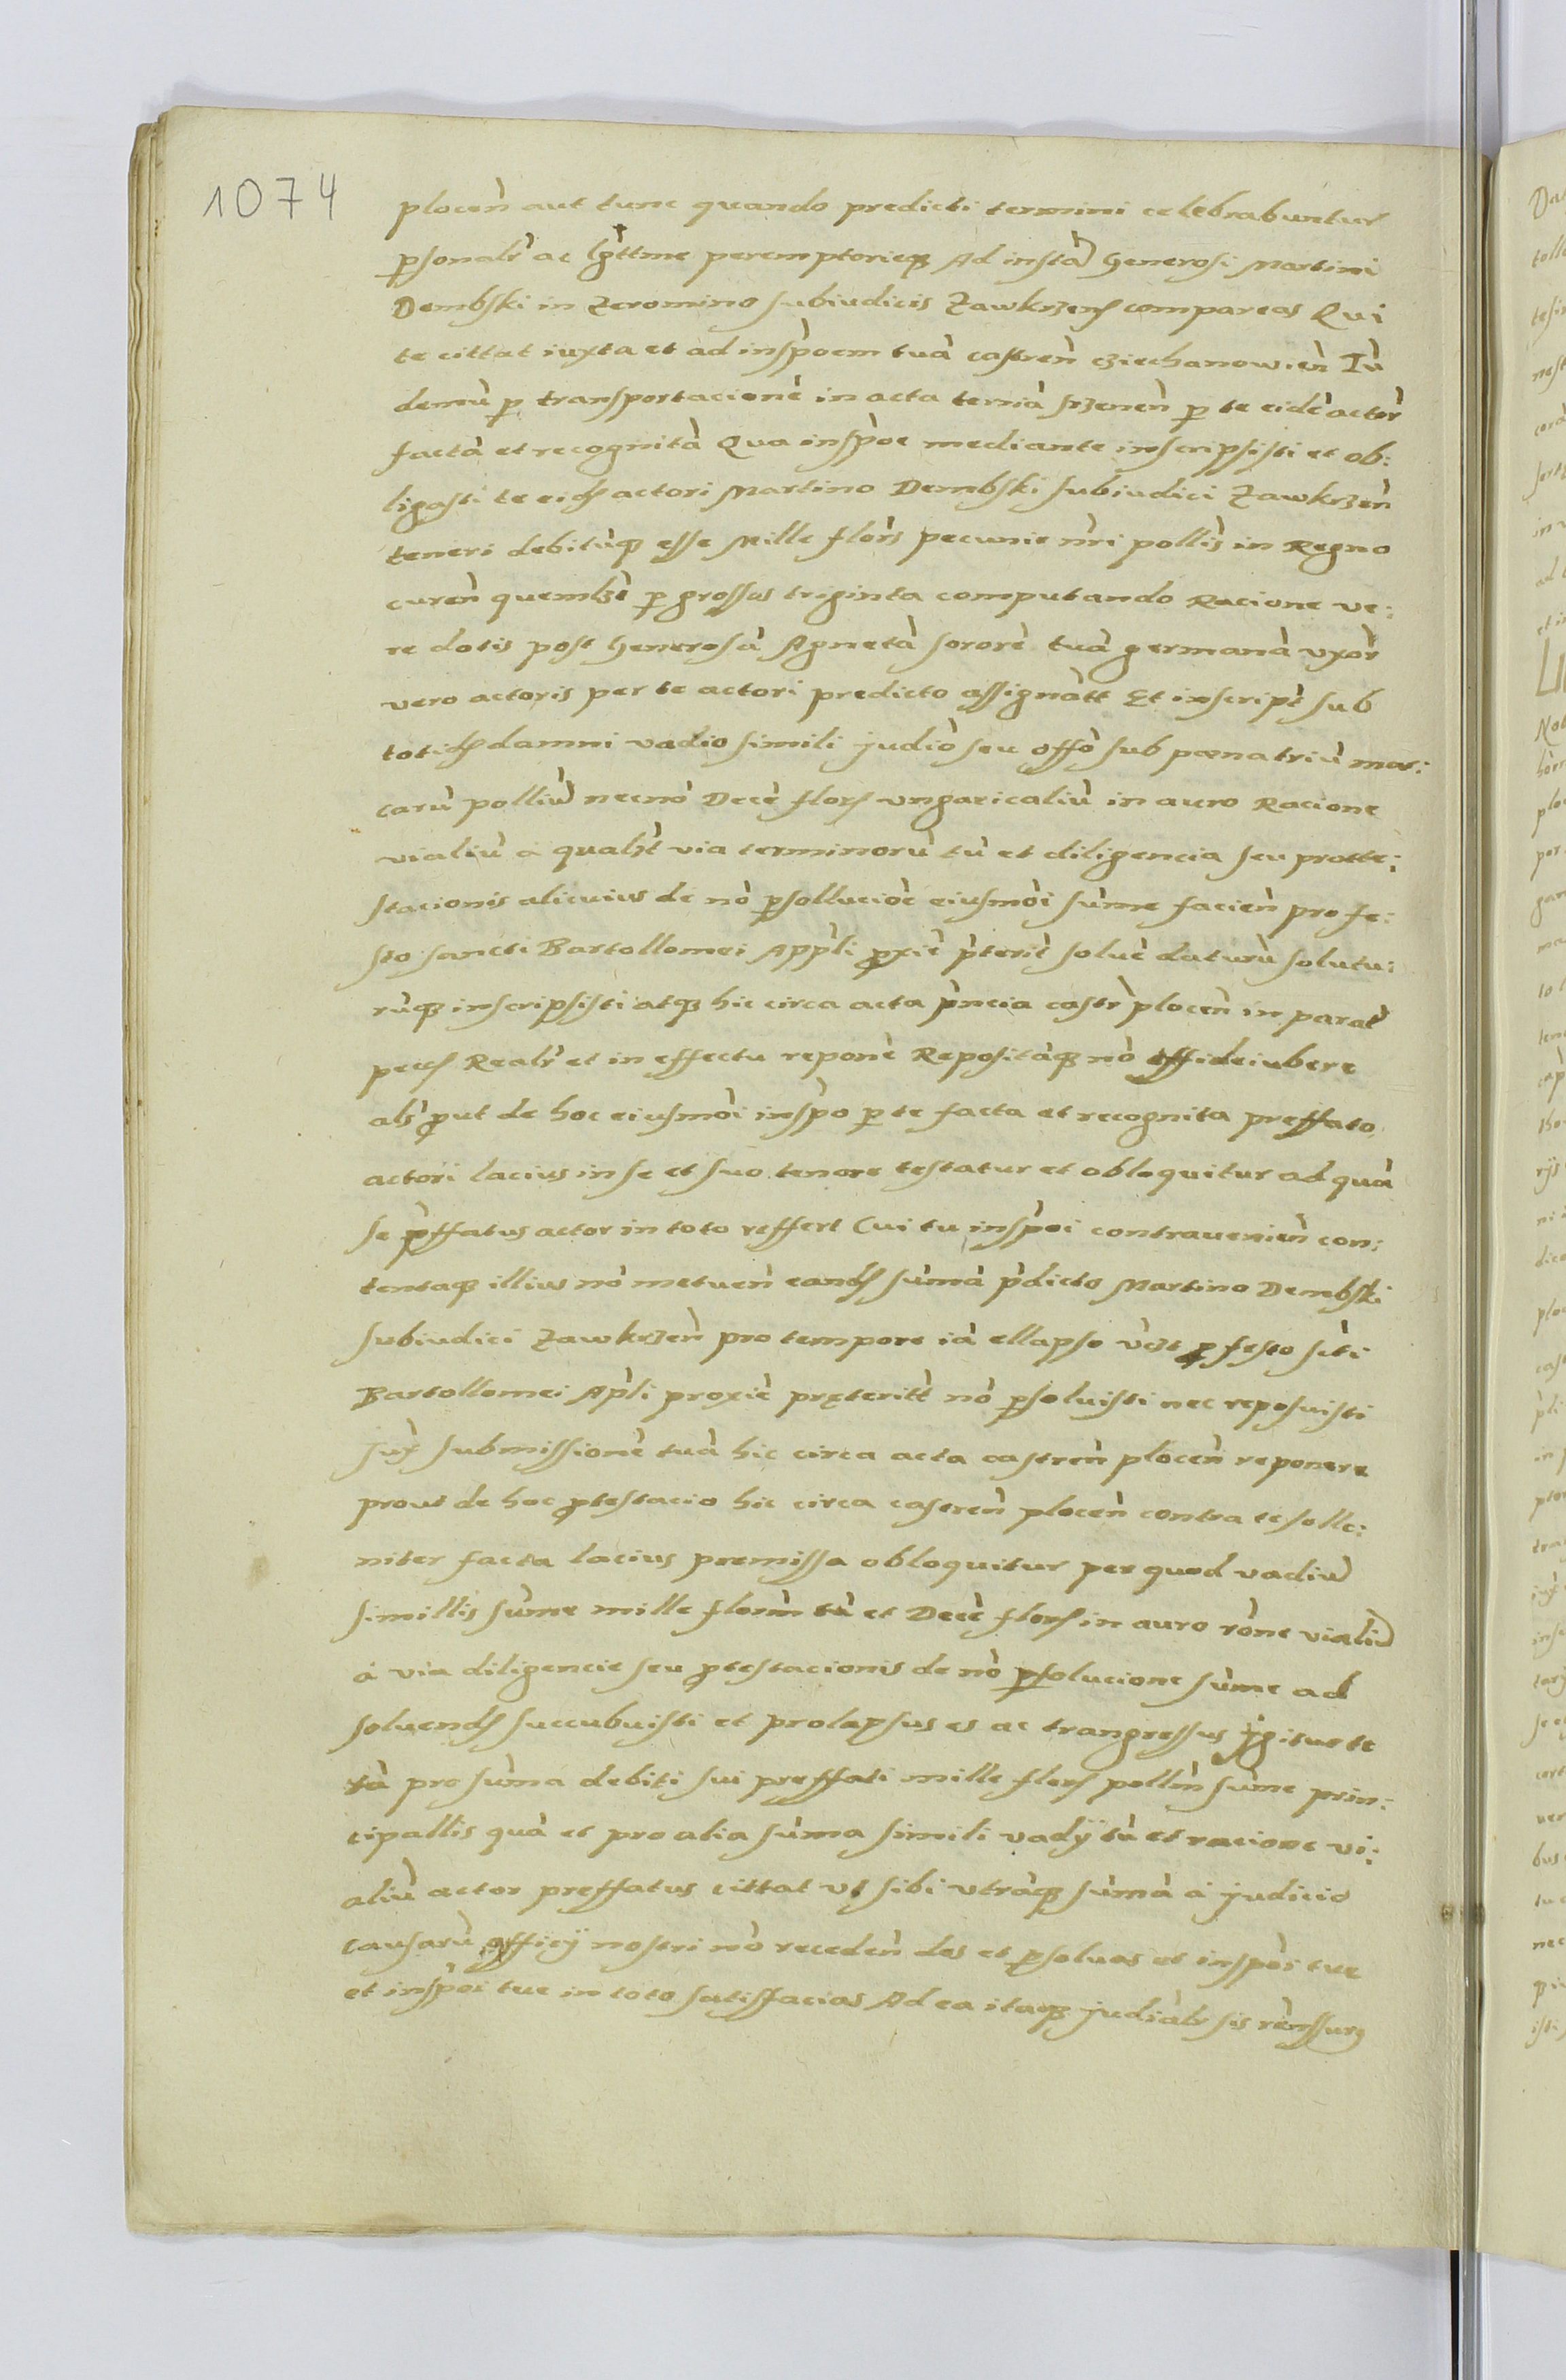 1074
plocen̄ aut tunc quando predicti termini celebrabuntur
psonalr̄ ac lgttme peremptorieqȝ Ad instā Generosi Martini
Dembski in Zeromino subiudicis Zawkrzens compareas Qui
te cittat iuxta et ad inspoem tuā castren̄ cziechanowien̄ Tū
demū p transportacionē in acta terriā srzenen̄ p te eidē actor̄
factā et recognitā Qua inspoe mediante inscripsisti et ob:
ligasti te eids actori Martino Dembski subiudici Zawkrzen̄
teneri debitūqȝ esse Mille flors pecunie nr̄i pollis in Regno
curen̄ quemlȝt p grossos triginta computando Racione ve:
re dotis post Generosā Agnetā sororē tuā germanā vxor̄
vero actoris per te actori predicto assignātt Et inscript̄ sub
totids damni vadio simili judiō seu offō sub pœna triū mar:
carū polliū necnō Decē flors vngaricaliū in auro Racione
vialiū ā qualȝt via terminorū tū et diligencia seu protte:
stacionis alicuius de nō psolluciōē eiusmōi sūme facien̄ pro fe:
sto sancti Bartollomei App̄li proxiē p̄terit̄ soluē daturū solutu:
rūqȝ inscripsisti atqȝ hic circa acta p̄ncia castr̄ plocen̄ in parat̄
pecs Realr̄ et in effectu reponē Repositāqȝ nō effideiubere
alr̄ prout de hoc eiusmōi inspo p te facta et recognita preffato
actori lacius in se et suo tenore testatur et obloquitur ad quā
se p̄ffatus actor in toto reffert Cui tu inspoi contraueniēn con:
tentaqȝ illius nō metuen̄ eands sūmā p̄dicto Martino Dembski
subiudici Zawkrzen̄ pro tempore iā ellapso vz̄t p festo sc̄ti
Bartollomei Ap̄li proxiē pręteritt̄ nō psoluisti nec reposuisti
iux̄ submissionē tuā hic circa acta castren̄ plocen̄ reponere
prout de hoc ptestacio hic circa castren̄ plocen̄ contra te solle:
niter facta lacius premissa obloquitur per quod vadiū
simillis sūme mille florm̄ tā et Decē flors in auro rōne vialiū
ā via diligencie seu ptestacionis de nō psolucione sūme ad
soluends succubuisti et prolapsus es ac trangressus ÿgitur te
tā pro sūma debiti sui preffati mille flors pollm̄ sūme prin:
cipallis quā et pro alia sūma simili vadÿ tū et racione vi:
aliū actor preffatus cittat vt sibi vtrāqȝ sūmā ā judicio
causarū officÿ nostri nō receden̄ des et psoluas et inspōi tue
et inspōi tue in toto satisfacias Ad ea itaqȝ judiālr sis rēnssurꝰ